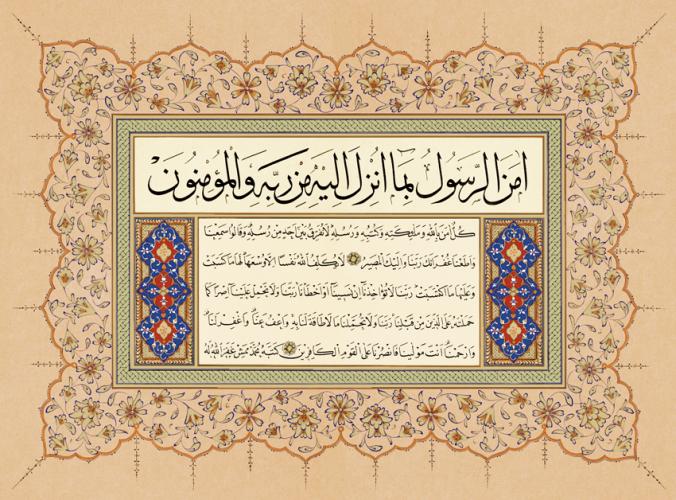 اٰمَنَ الرَّسُولُ بِمَا اُنْزِلَ اِلَيْهِ مِنْ رَبِّهِ وَالْمُؤْمِنُونَ
كُلٌّ اٰمَنَ بِاللّٰهِ وَمَلٰئِكَتِهِ وَكُتُبِهِ وَرُسُلِهِ لَا نُفَرِّقُ بَيْنَ اَحَدٍ مِنْ رُسُلِهِ وَقَالُوا سَمِعْنَا
وَاَطَعْنَا غُفْرَانَكَ رَبَّنَا وَاِلَيْكَ الْمَصِيرُ لَا يُكَلِّفُ اللّٰهُ نَفْسًا اِلَّا وُسْعَهَا لَهَا مَا كَسَبَتْ
وَعَلَيْهَا مَا اكْتَسَبَتْ رَبَّنَا لَا تُؤَاخِذْنَا اِنْ نَسِينَا اَوْ اَخْطَأْنَا رَبَّنَا وَلَا تَحْمِلْ عَلَيْنَا اِصْرًا كَمَا
حَمَلْتَهُ عَلَى الَّذِينَ مِنْ قَبْلِنَا رَبَّنَا وَلَا تُحَمِّلْنَا مَا لَا طَاقَةَ لَنَا بِهِ وَاعْفُ عَنَّا وَاغْفِرْ لَنَا
وَارْحَمْنَا اَنْتَ مَوْلٰينَا فَانْصُرْنَا عَلَى الْقَوْمِ الْكَافِرِينَ كتبه محمد غفر الله له